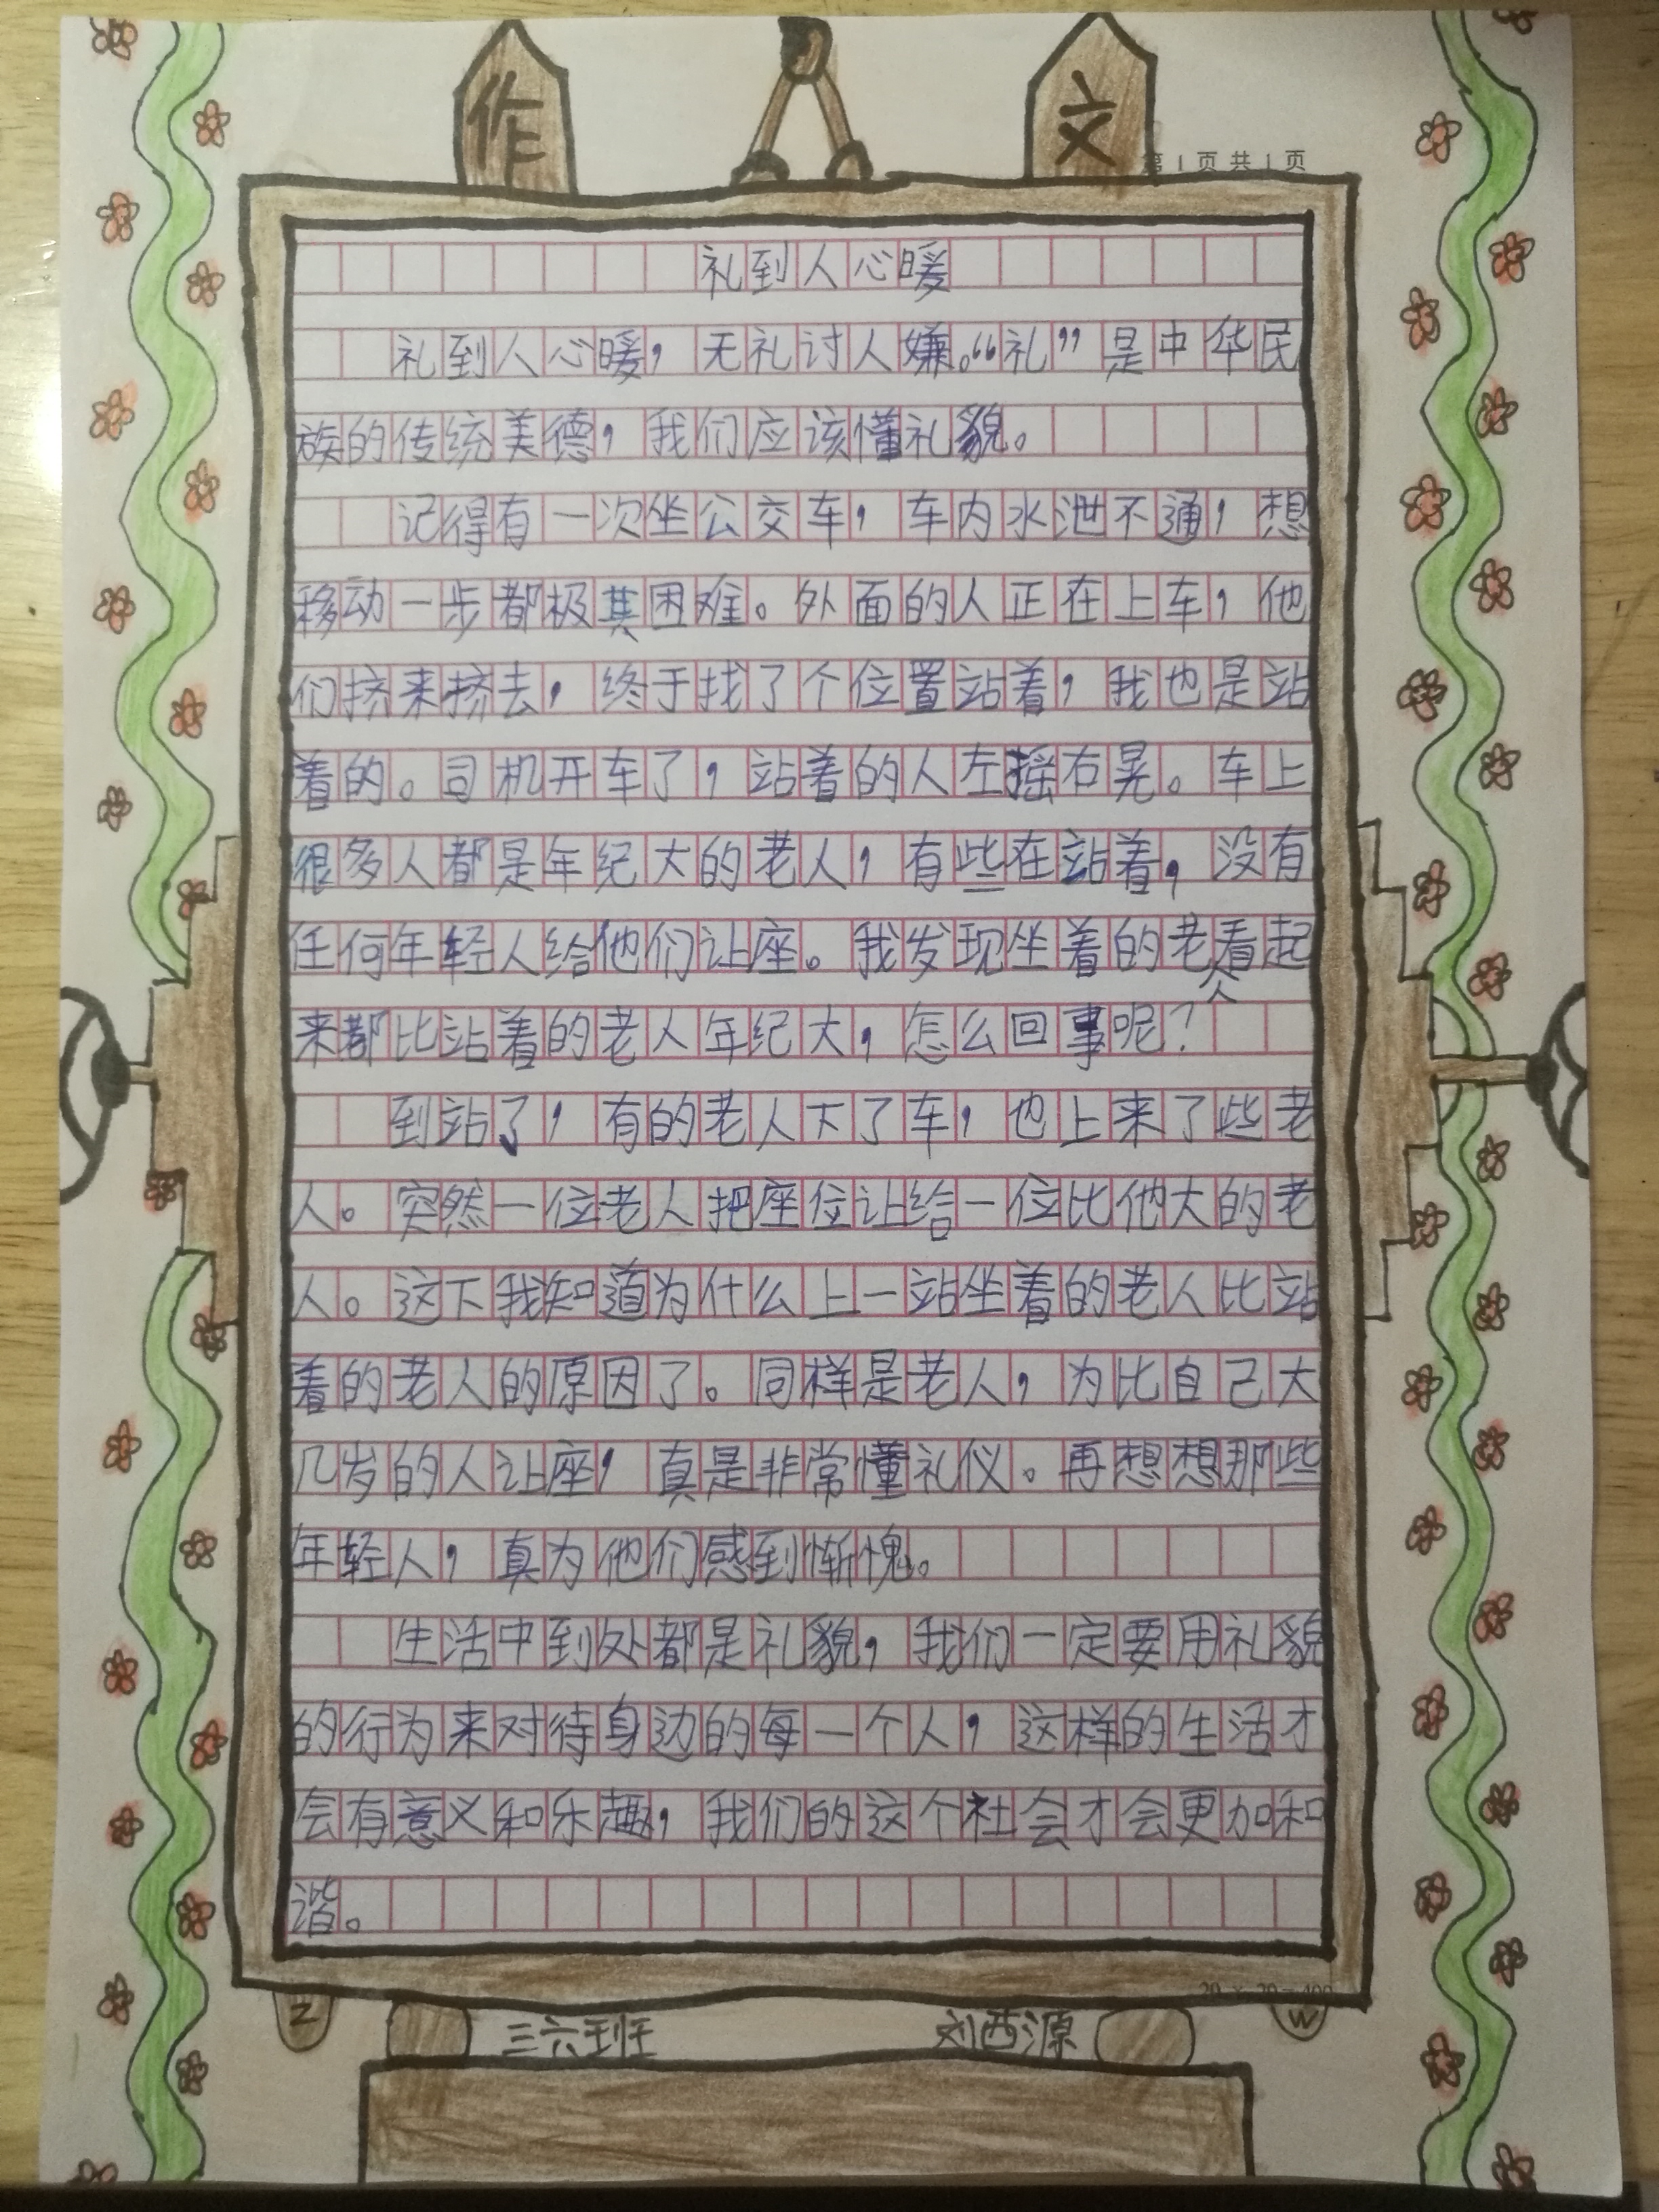 作文
第1页共1页
礼到人心暖
礼到人心暖，无礼讨人嫌。“礼”是中华民
族的传统美德，我们应该懂礼貌。
记得有一次坐公交车，车内水泄不通，想
移动一步都极其困难。外面的人正在上车，他
们挤来挤去，终于找了个位置站着，我也是站
着的。司机开车了，站着的人左摇右晃。车上
很多人都是年纪大的老人，有些在站着，没有
任何年轻人给他们让座。我发现坐着的老人看起
来都比站着的老人年纪大，怎么回事呢？
到站了，有的老人下了车，也上来了些老
人。突然一位老人把座位让给一位比他大的老
人。这下我知道为什么上一站坐着的老人比站
着的老人的原因了。同样是老人，为比自己大
几岁的人让座，真是非常懂礼仪。再想想那些
年轻人，真为他们感到惭愧。
生活中到处都是礼貌，我们一定要用礼貌
的行为来对待身边的每一个人，这样的生活才
会有意义和乐趣，我们的这个社会才会更加和
谐。
20×20=400
Z
W
三六班 刘西源